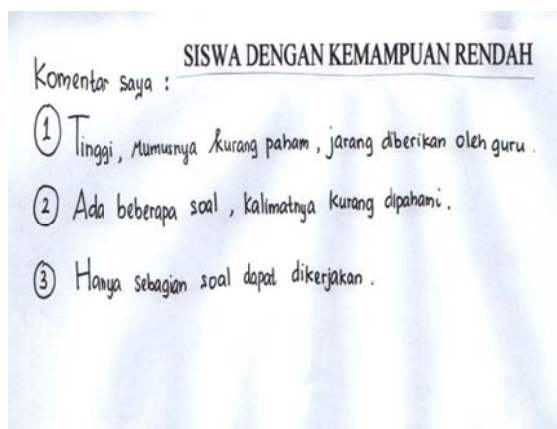 SISWA DENGAN KEMAMPUAN RENDAH
Komentar saya :
1 Tinggi, rumusnya kurang paham, jarang diberikan oleh guru.
2 Ada beberapa soal, kalimatnya kurang dipahami.
3 Hanya sebagian soal dapat dikerjakan.